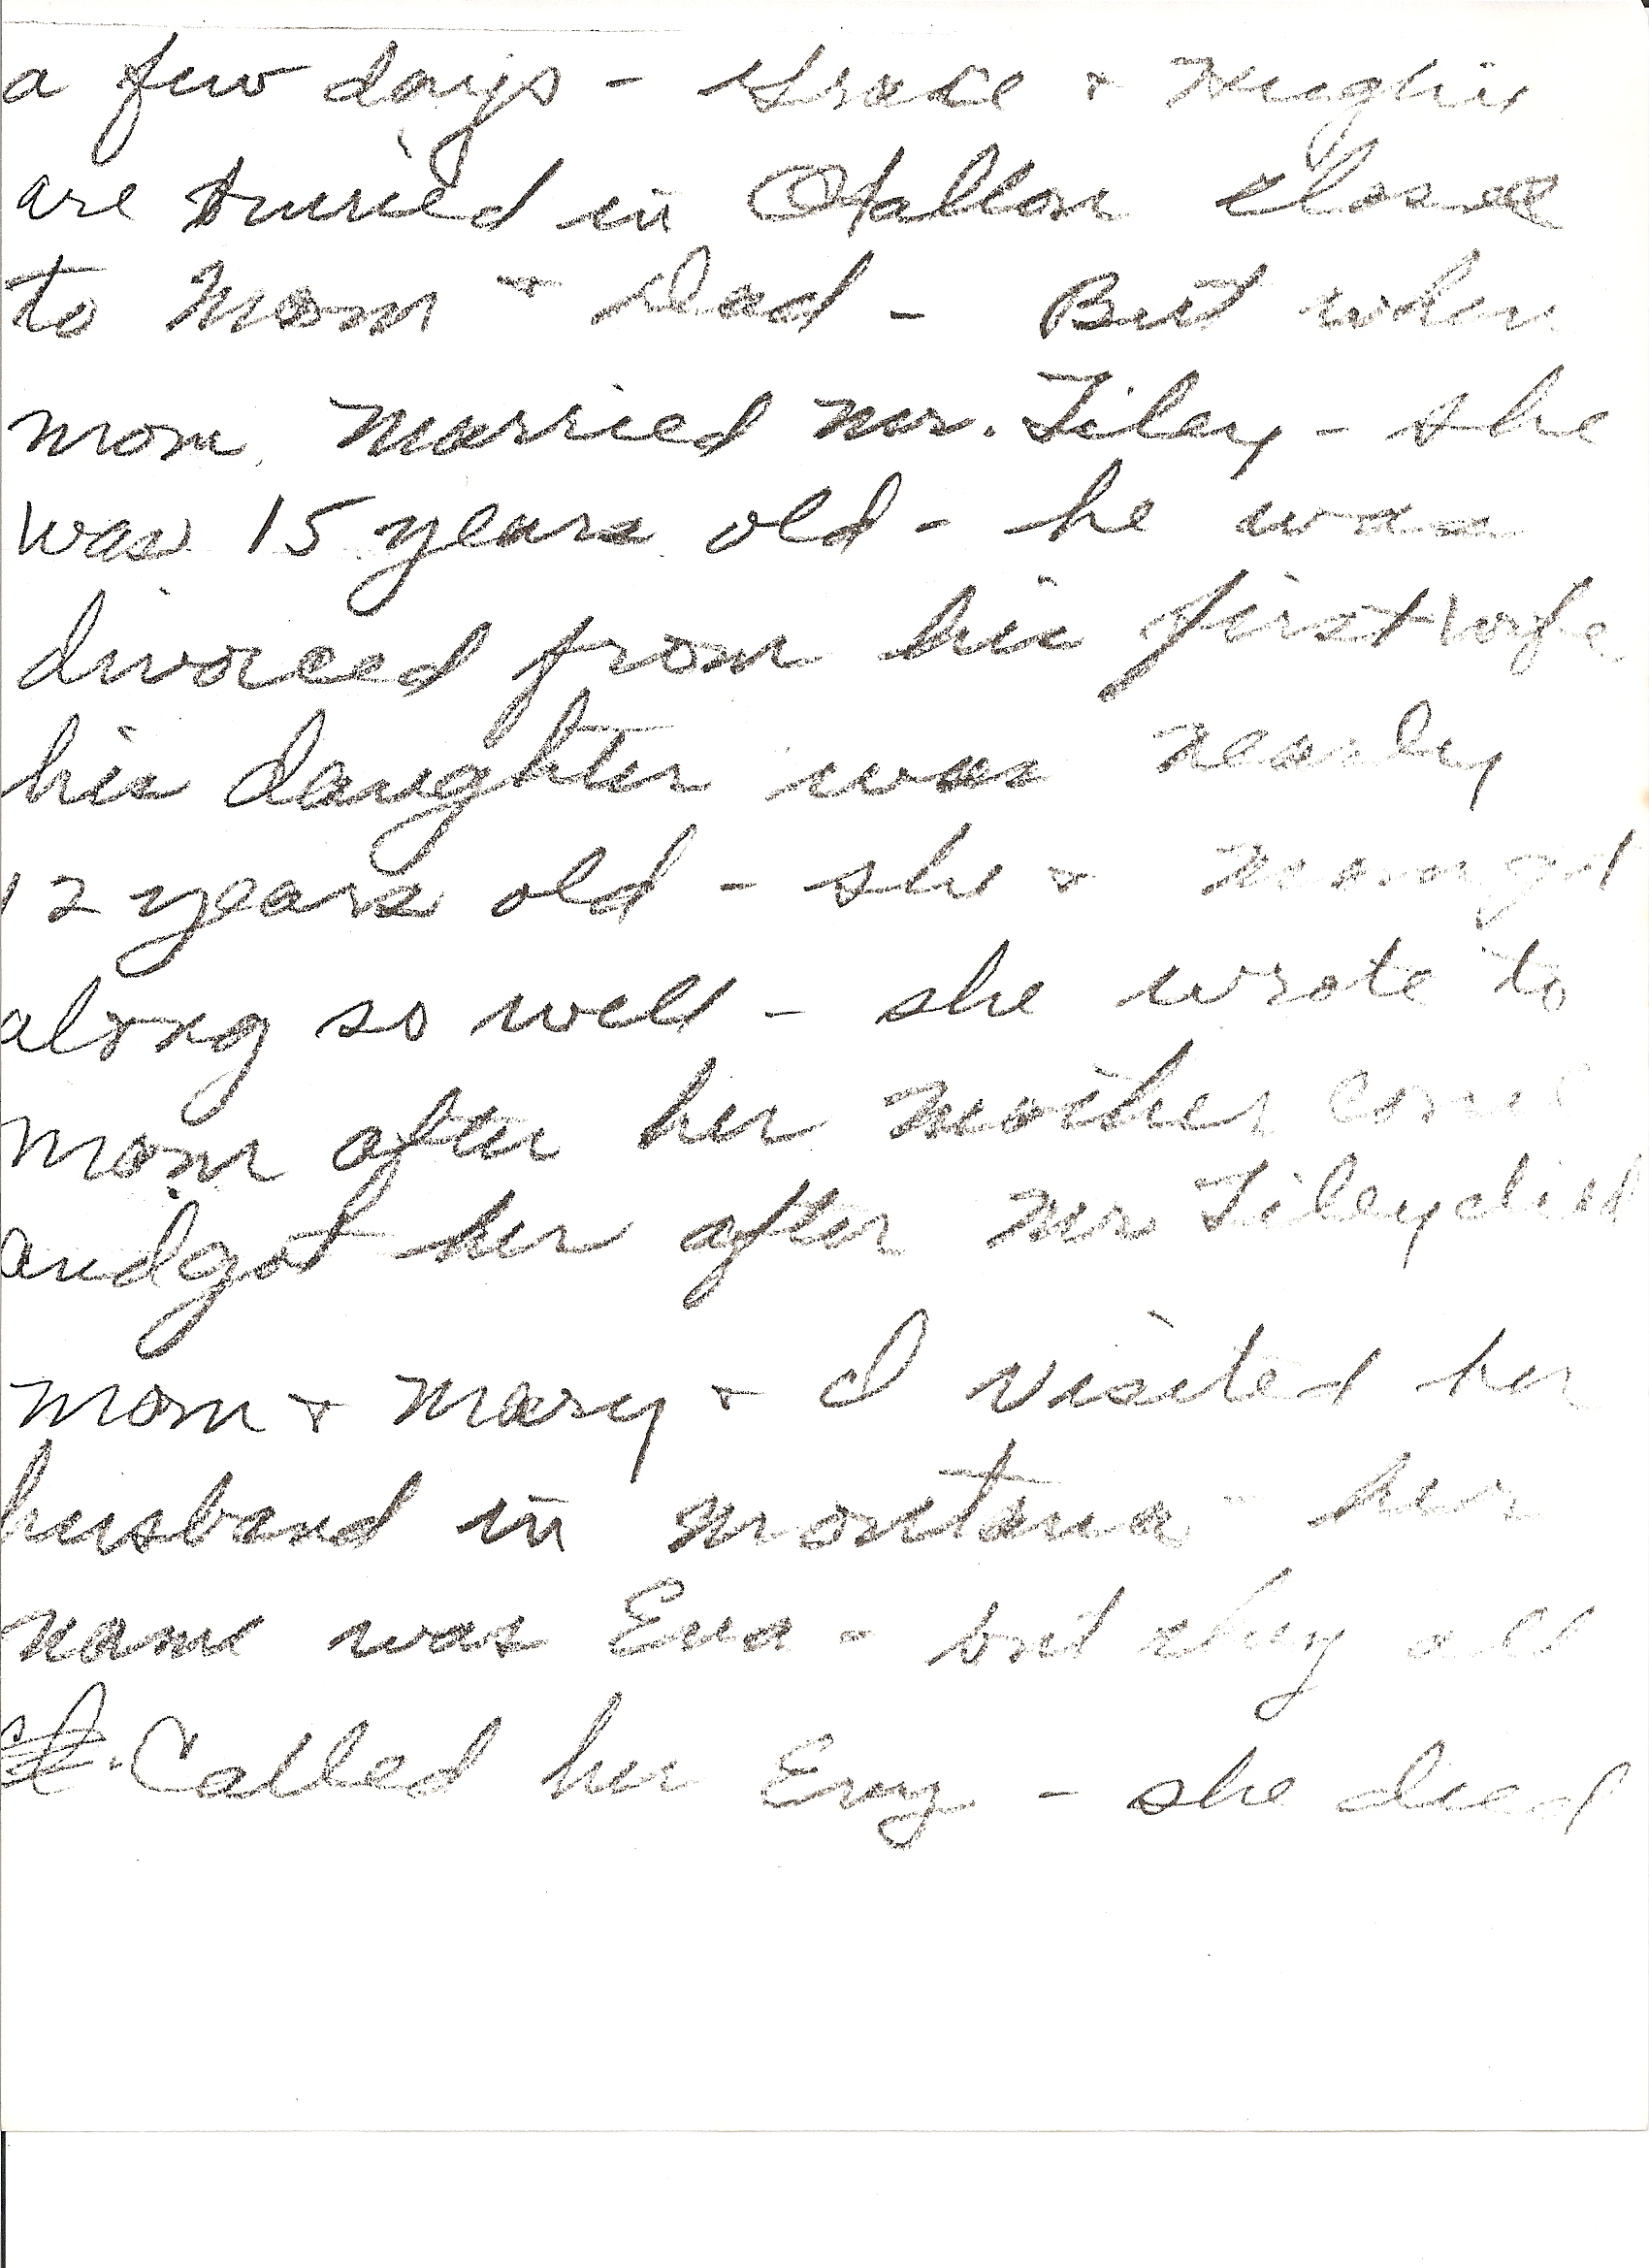 a few days - Grace & Hughie
are buried in Ofallon close
to Mom & Dad - But when
mom married Mr. Tiley - she
was 15 years old - he was
divorced from his first wife
his daughter was nearly
12 years old - she & mom got
along so well - she wrote to
mom after her mother come
and got her after Mr Tiley died
mom & Mary & I visited her
husband in Montana - her
name was Eva - but they all
Called her Evy - she died